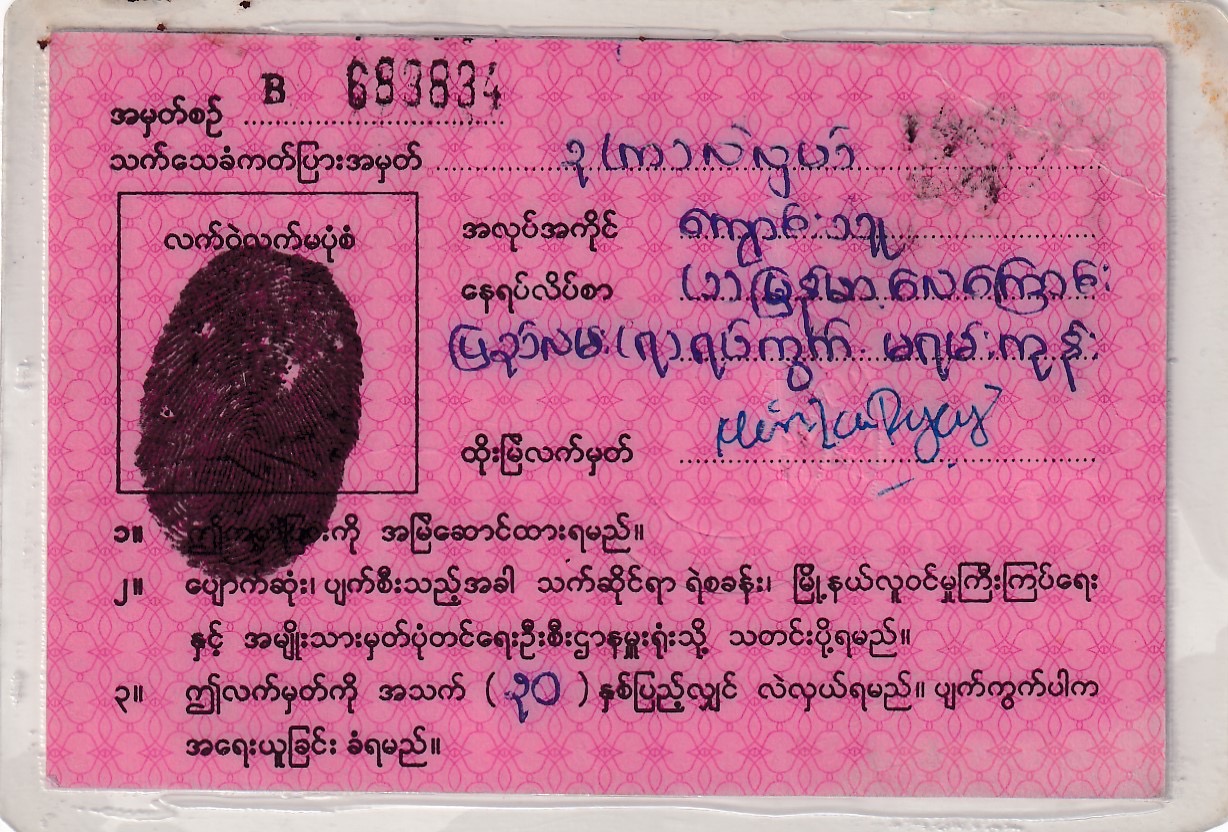 အမှတ်စဉ် B 653834
သက်သေခံကတ်ပြားအမှတ် ၃(ကာ)လဲလှယ်
လက်ဝဲလက်မပုံစံ
အလုပ်အကိုင် ကျောင်းသူ
နေရပ်လိပ်စာ (၁)မြန်မာ့လေကြောင်း
ပြည်လမ်း(ရ)ရပ်ကွက် မရမ်းကုန်း
ထိုးမြဲလက်မှတ်
၁။ ဤကတ်ပြားကို အမြဲဆောင်ထားရမည်။
၂။ ပျောက်ဆုံး၊ ပျက်စီးသည့်အခါ သက်ဆိုင်ရာ ရဲစခန်း၊ မြို့နယ်လူဝင်မှုကြီးကြပ်ရေး
နှင့် အမျိုးသားမှတ်ပုံတင်ရေးဦးစီးဌာနမှူးရုံးသို့ သတင်းပို့ရမည်။
၃။ ဤလက်မှတ်ကို အသက် (၃၀) နှစ်ပြည့်လျှင် လဲလှယ်ရမည်။ ပျက်ကွက်ပါက
အရေးယူခြင်း ခံရမည်။